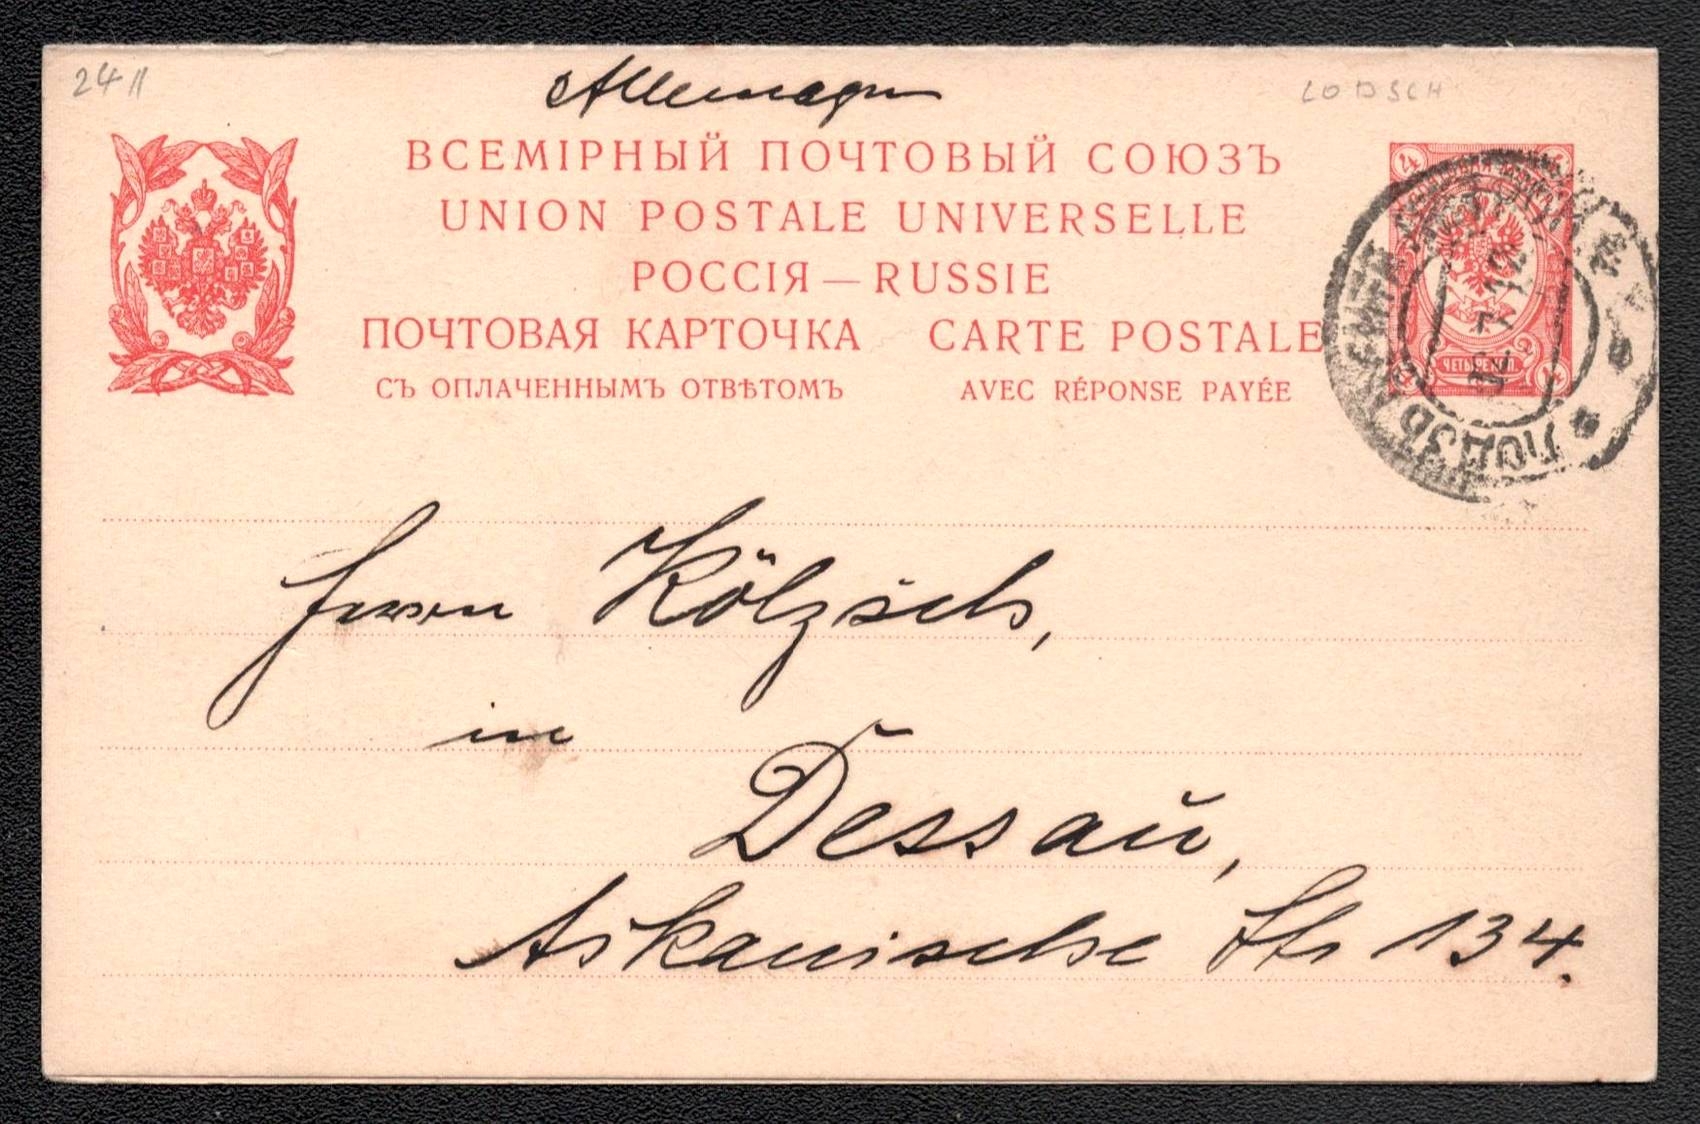 24 11
Allemagne
LODSCH
ВСЕМІРНЫЙ ПОЧТОВЫЙ СОЮЗЪ
UNION POSTALE UNIVERSELLE
РОССІЯ — RUSSIE
ПОЧТОВАЯ КАРТОЧКА CARTE POSTALE
СЪ ОПЛАЧЕННЫМЪ ОТВѢТОМЪ AVEC RÉPONSE PAYÉE
4 4
ЧЕТЫРЕ КОП.
4 4
ЛОДЗЬ
Herrn Kölzsch,
in
Dessau,
Askanische Str 134.